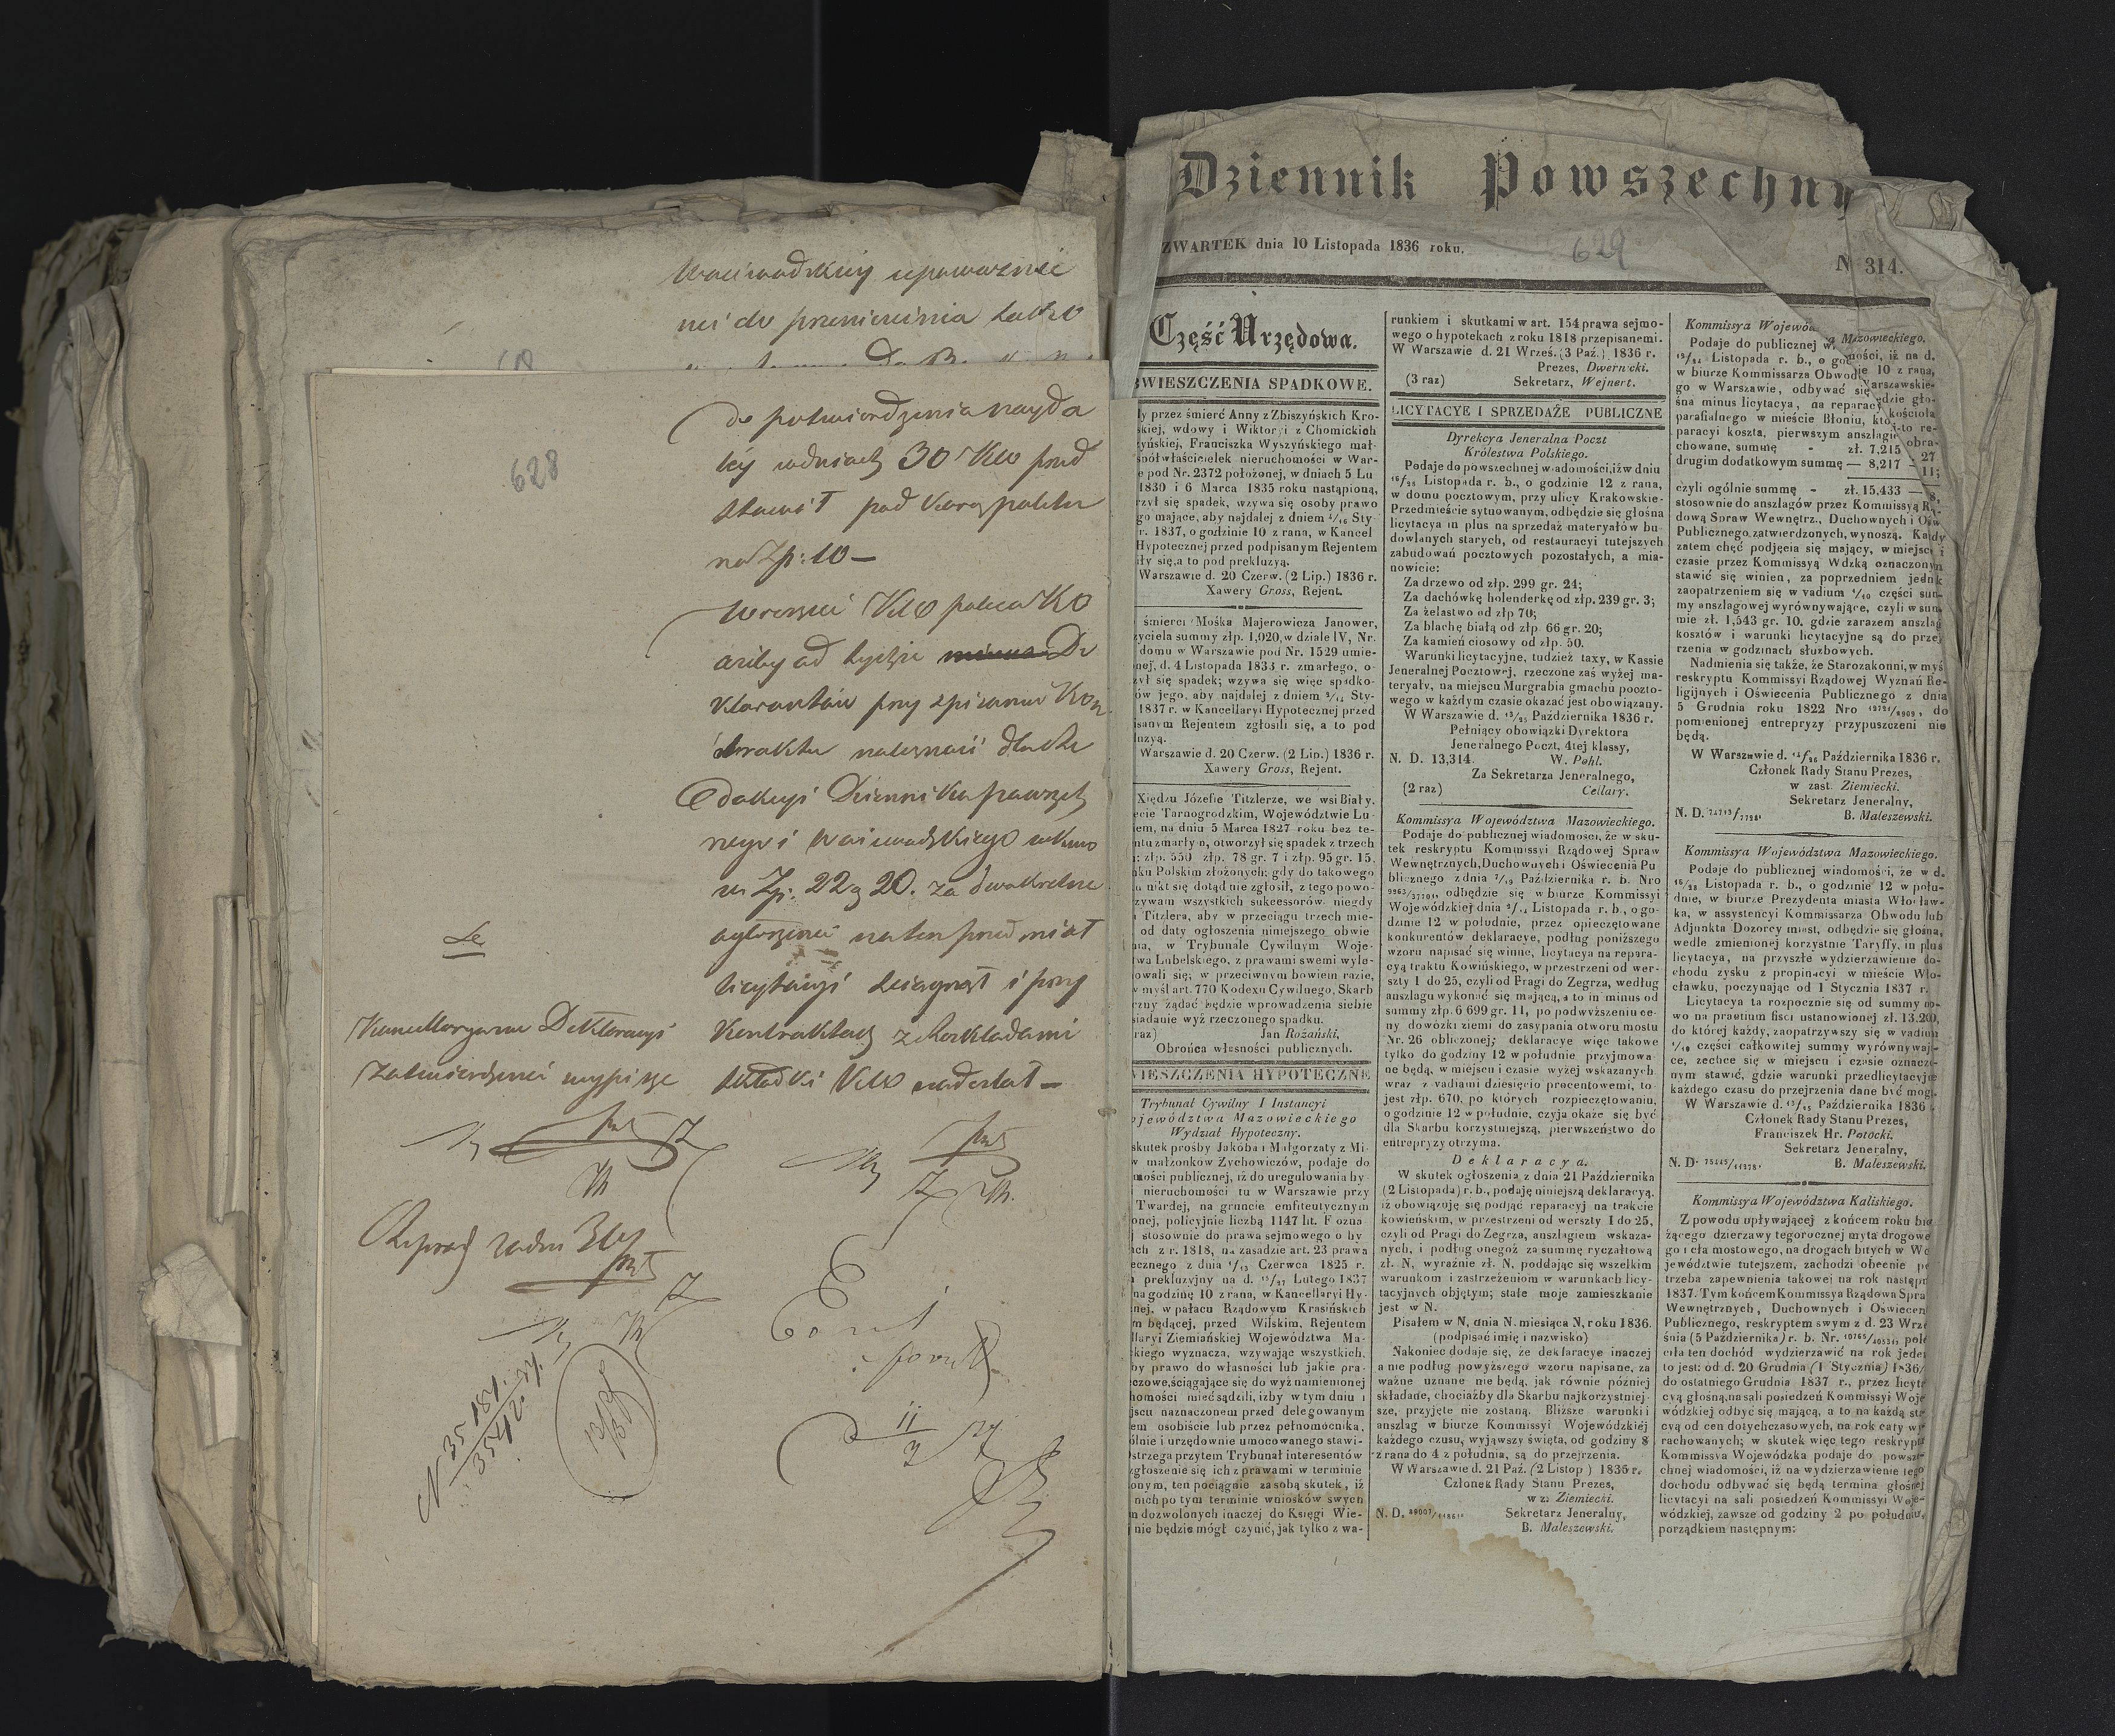 Wojewódzkiey upoważnie
nei do przeniesienia
628
do potwierdzenia nayda
ley w dniach 30 KW przed
stawił pod karą porteru
na Zp: 10 —
Wreszcie KW poleca Ko
ażeby od tychże De
klarantów przy spisaniu Kon
traktu należność dla Re
dakcyi Dziennika powszech
nego i Woiewodzkiego
Zp: 22 g 20. za dwukrotne
ogłoszenie na ten przedmiot
licytacyi ściągnął i przy
Kontraktach z dokładami
składki KW nadesłał —
Deklaracyi
Zatwierdzenei wypisze
N 35
Dziennik Powszechny
ZWARTEK dnia 10 Listopada 1836 roku.
629
N 314.
Część Urzędowa.
BWIESZCZENIA SPADKOWE.
ly przez śmierć Anny z Zbiszyńskich Kro-
skiej, wdowy i Wiktoryi z Chomickich
zyńskiej, Franciszka Wyszyńskiego mał-
spół właścicielek nieruchomości w War-
e pod Nr. 2372 położonej, w dniach 5 Lu
1830 i 6 Marca 1835 roku nastąpioną,
rzył się spadek, wzywa się osoby prawo
go mające, aby najdalej z dniem 4/16 Sty-
r. 1837, o godzinie 10 z rana, w Kancel
Hypotecznej przed podpisanym Rejentem
iły się, a to pod prekluzyą.
Warszawie d. 20 Czerw. (2 Lip.) 1836 r.
Xawery Gross, Rejent.
śmierci Mośka Majerowicza Janower,
zyciela summy złp. 1,920, w dziale IV, Nr.
domu w Warszawie pod Nr. 1529 umie-
nej, d. 4 Listopada 1833 r. zmarłego, o-
zył się spadek; wzywa się więc spadko-
ów jego, aby najdalej z dniem Sty-
1837 r. w Kancellaryi Hypotecznej przed
isanym Rejentem zgłosili się, a to pod
luzyą.
Warszawie d. 20 Czerw. (2 Lip.) 1836 r.
Xawery Gross, Rejent.
Xiędzu Józefie Titzlerze, we wsi Biały.
ecie Tarnogrodzkim, Województwie Lu-
iem, na dniu 5 Marca 1827 roku bez te-
ntu zmarłym, otworzył się spadek z trzech
: złp. 550 złp. 78 gr. 7 i złp. 95 gr. 15.
ku Polskim złożonych; gdy do takowego
u nikt się dotąd nie zgłosił, z tego powo-
zywam wszystkich sukcessorów niegdy
Titzlera, aby w przeciągu trzech mie-
od daty ogłoszenia niniejszego obwie
nia, w Trybunale Cywilnym Woje-
twa Lubelskiego, z prawami swemi wyle-
owali się; w przeciwnym bowiem razie,
w myśl art. 770 Kodexu Cywilnego, Skarb
czny żądać będzie wprowadzenia siebie
siadanie wyż rzeczonego spadku.
raz) Jan Rożański,
Obrońca własności publicznych.
WIESZCZENIA HYPOTECZNE
Trybunał Cywilny I Instancyi
ojewództwa Mazowieckiego
Wydział Hypoteczny.
skutek prośby Jakóba i Małgorzaty z Mi-
w małżonków Zychowiczów, podaje do
mości publicznej, iż do uregulowania hy
nieruchomości tu w Warszawie przy
Twardej, na gruncie emfiteutycznym
onej, policyjnie liczbą 1147 lit. F ozna
j stosownie do prawa sejmowego o hy
ach z r. 1818, na zasadzie art. 23 prawa
ecznego z dnia 1/13 Czerwca 1825 r.
prekluzyjny na d. 15/27 Lutego 1837
na godzinę 10 z rana, w Kancellaryi Hy-
nej, w pałacu Rządowym Krasińskich
m będącej, przed Wilskim, Rejentem
llaryi Ziemiańskiej Województwa Ma-
ckiego wyznacza, wzywając wszystkich,
by prawo do własności lub jakie pra-
czowe, ściągające się do wyż namienionej
homości mieć sądzili, iżby w tym dniu i
jscu naznaczonem przed delegowanym
em osobiście lub przez pełnomocnika,
ólnie i urzędownie umocowanego stawi-
strzega przytem Trybunał interesentów
zgłoszenie się ich z prawami w terminie
onym, ten pociągnie za sobą skutek, iż
nich po tym terminie wniosków swych
n dozwolonych inaczej do Księgi Wie-
nie będzie mógł czynić, jak tylko z wa-
runkiem i skutkami w art. 154 prawa sejmo-
wego o hypotekach z roku 1818 przepisanemi.
W Warszawie d. 21 Wrześ. (3 Paź.) 1836 r.
Prezes, Dwernicki.
(3 raz) Sekretarz, Wejnert.
LICYTACYE I SPRZEDAŻE PUBLICZNE
Dyrekcya Jeneralna Poczt
Królestwa Polskiego.
Podaje do powszechnej wiadomości, iż w dniu
16/28 Listopada r. b., o godzinie 12 z rana,
w domu pocztowym, przy ulicy Krakowskie-
Przedmieście sytuowanym, odbędzie się głośna
licytacya in plus na sprzedaż materyałów bu-
dowlanych starych, od restauracyi tutejszych
zabudowań pocztowych pozostałych, a mia-
nowicie:
Za drzewo od złp. 299 gr. 24;
Za dachówkę holenderkę od złp. 239 gr. 3;
Za żelastwo od złp 70;
Za blachę białą od złp 66 gr. 20;
Za kamień ciosowy od złp. 50.
Warunki licytacyjne, tudzież taxy, w Kassie
Jeneralnej Pocztowej, rzeczone zaś wyżej ma-
teryały, na miejscu Murgrabia gmachu poczto-
wego w każdym czasie okazać jest obowiązany.
W Warszawie d. 13/25 Października 1836 r.
Pełniący obowiązki Dyrektora
Jeneralnego Poczt, 4tej klassy,
N. D. 13,314. W. Pohl.
Za Sekretarza Jeneralnego,
(2 raz) Cellary.
Kommissya Województwa Mazowieckiego.
Podaje do publicznej wiadomości, że w sku-
tek reskryptu Kommissyi Rządowej Spraw
Wewnętrznych, Duchownych i Oświecenia Pu
blicznego z dnia 7/19 Października r. b. Nro
odbędzie się w biurze Kommissyi
Wojewódzkiej dnia Listopada r. b., o go-
dzinie 12 w południe, przez opieczętowane
konkurentów deklaracye, podług poniższego
wzoru napisać się winne, licytacya na repara-
cyą traktu Kowińskiego, w przestrzeni od wer-
szty 1 do 25, czyli od Pragi do Zegrza, według
anszlagu wykonać się mającą, a to in minus od
summy złp. 6 699 gr. 11, po podwyższeniu ce-
ny dowózki ziemi do zasypania otworu mostu
Nr. 26 obliczonej; deklaracye więc takowe
tylko do godziny 12 w południe przyjmowa-
ne będą, w miejscu i czasie wyżej wskazanych
wraz z vadiami dziesięcio procentowemi, to
jest złp. 670, po których rozpieczętowaniu,
o godzinie 12 w południe, czyja okaże się być
dla Skarbu korzystniejszą, pierwszeństwo do
entrepryzy otrzyma.
Deklaracya.
W skutek ogłoszenia z dnia 21 Października
(2 Listopada) r. b., podaję niniejszą deklaracyą,
iż obowiązuję się podjąć reparacyj na trakcie
kowieńskim, w przestrzeni od werszty 1 do 25,
czyli od Pragi do Zegrza, anszlagiem wskaza-
nych, i podług onegoż za summę ryczałtową
zł. N, wyraźnie zł. N, poddając się wszelkim
warunkom i zastrzeżeniom w warunkach licy-
tacyjnych objętym; stałe moje zamieszkanie
jest w N.
Pisałem w N, dnia N. miesiąca N, roku 1836.
(podpisać imię i nazwisko)
Nakoniec dodaje się, że deklaracye inaczej
a nie podług powyższego wzoru napisane, za
ważne uznane nie będą, jak równie później
składane, chociażby dla Skarbu najkorzystniej-
sze, przyjęte nie zostaną. Bliższe warunki i
anszlag w biurze Kommissyi Wojewódzkiéj
każdego czasu, wyjąwszy święta, od godziny 8
z rana do 4 z południa, są do przejrzenia.
W Warszawie d. 21 Paź. (2 Listop) 1836 r.
Członek Rady Stanu Prezes,
w z: Ziemiecki.
N. D. Sekretarz Jeneralny,
B. Maleszewski.
Kommissya Wojewó Mazowieckiego.
Podaje do publicznej w mości, iż na d.
Listopada r. b., o god ie 10 z rana,
w biurze Kommissarza Obwod Warszawskie-
go w Warszawie, odbywać się będzie gło-
śna minus licytacya, na reparacy kościoła
parafialnego w mieście Błoniu, któ to re-
paracyi koszta, pierwszym anszlagie obra-
chowane, summę - zł. 7,215 - 27
drugim dodatkowym summę — 8,217 - 11;
czyli ogólnie summę - zł. 15,433 — 8,
stosownie do anszlagów przez Kommissyą Rzą-
dową Spraw Wewnętrz., Duchownych i Ośw
Publicznego zatwierdzonych, wynoszą. Każdy
zatem chęć podjęcia się mający, w miejscu i
czasie przez Kommissyą Wdzką oznaczonym
stawić się winien, za poprzedniem jednik
zaopatrzeniem się w vadium 1/10 części sum-
my anszlagowej wyrównywające, czyli w sum
mie zł. 1,543 gr. 10. gdzie zarazem anszlag
kosztów i warunki licytacyjne są do przej
rzenia w godzinach służbowych.
Nadmienia się także, że Starozakonni, w myś
reskryptu Kommissyi Rządowej Wyznań Re-
ligijnych i Oświecenia Publicznego z dnia
5 Grudnia roku 1822 Nro do
pomienionej entrepryzy przypuszczeni nie
będą.
W Warszawie d. Października 1836 r.
Członek Rady Stanu Prezes,
w zast. Ziemiecki.
Sekretarz Jeneralny,
N. D. B. Maleszewski.
Kommissya Województwa Mazowieckiego.
Podaje do publicznej wiadomości, że w d.
16/28 Listopada r. b., o godzinie 12 w połu-
dnie, w biurze Prezydenta miasta Włocław-
ka, w assystencyi Kommissarza Obwodu lub
Adjunkta Dozorcy miast, odbędzie się głośna,
wedle zmienionej korzystnie Taryffy, in plus
licytacya, na przyszłe wydzierżawienie do-
chodu zysku z propinacyi w mieście Wło-
cławku, poczynając od 1 Stycznia 1837 r.
Licytacya ta rozpocznie się od summy no-
wo na praetium fisci ustanowionej zł. 13,200,
do której każdy, zaopatrzywszy się w vadium
1/10 części całkowitej summy wyrównywają-
ce, zechce się w miejscu i czasie oznaczo-
nym stawić, gdzie warunki przedlicytacyjne
każdego czasu do przejrzenia dane być mogą.
W Warszawie d. 13/25 Października 1836
Członek Rady Stanu Prezes,
Franciszek Hr. Potocki.
Sekretarz Jeneralny,
N. D. B. Maleszewski.
Kommissya Województwa Kaliskiego.
Z powodu upływającej z końcem roku bie
żącego dzierżawy tegorocznej myta drogowe
go i cła mostowego, na drogach bitych w Wo
jewództwie tutejszem, zachodzi obecnie po
trzeba zapewnienia takowej na rok następn
1837. Tym końcem Kommissya Rządowa Spra
Wewnętrznych, Duchownych i Oświecen
Publicznego, reskryptem swym z d. 23 Wrze
śnia (5 Października) r. b. Nr. pole
ciła ten dochód wydzierżawić na rok jeden
to jest: od d. 20 Grudnia (1 Stycznia) 1836/
do ostatniego Grudnia 1837 r., przez licyta
cyą głośną, na sali posiedzeń Kommissyi Woje
wódzkiej odbyć się mającą, a to na każdą sta
cyą od cen dotychczasowych, na rok cały wy
rachowanych; w skutek więc tego reskryptu
Kommissya Wojewódzka podaje do powsze
chnej wiadomości, iż na wydzierżawienie tego
dochodu odbywać się będą termina głośnej
licytacyi na sali posiedzeń Kommissyi Woje-
wódzkiej, zawsze od godziny 2 po południu,
porządkiem następnym: